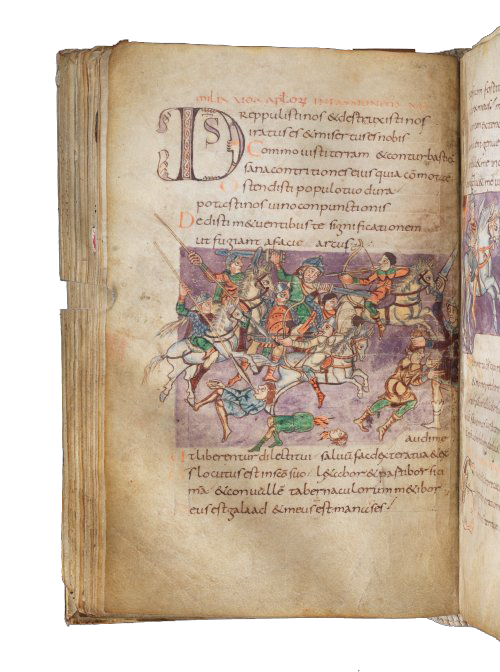 DS reppulisti nos & destruxisti nos
iratus es & misertus es nobis
Commovisti terram & conturbasti
sana contritiones eius quia commota e
Ostendisti populo tuo dura
potasti nos vino conpunctionis
Dedisti m&uentibus te significationem
ut fugiant a facie arcus
audi me
Ut liberentur dilecti tui salvum fac dextera tua & ex
ds locutus est in sco suo l&abor & partibor sici
ma & convalle tabernaculorum m&ibor
meus est galaad & meus est manases